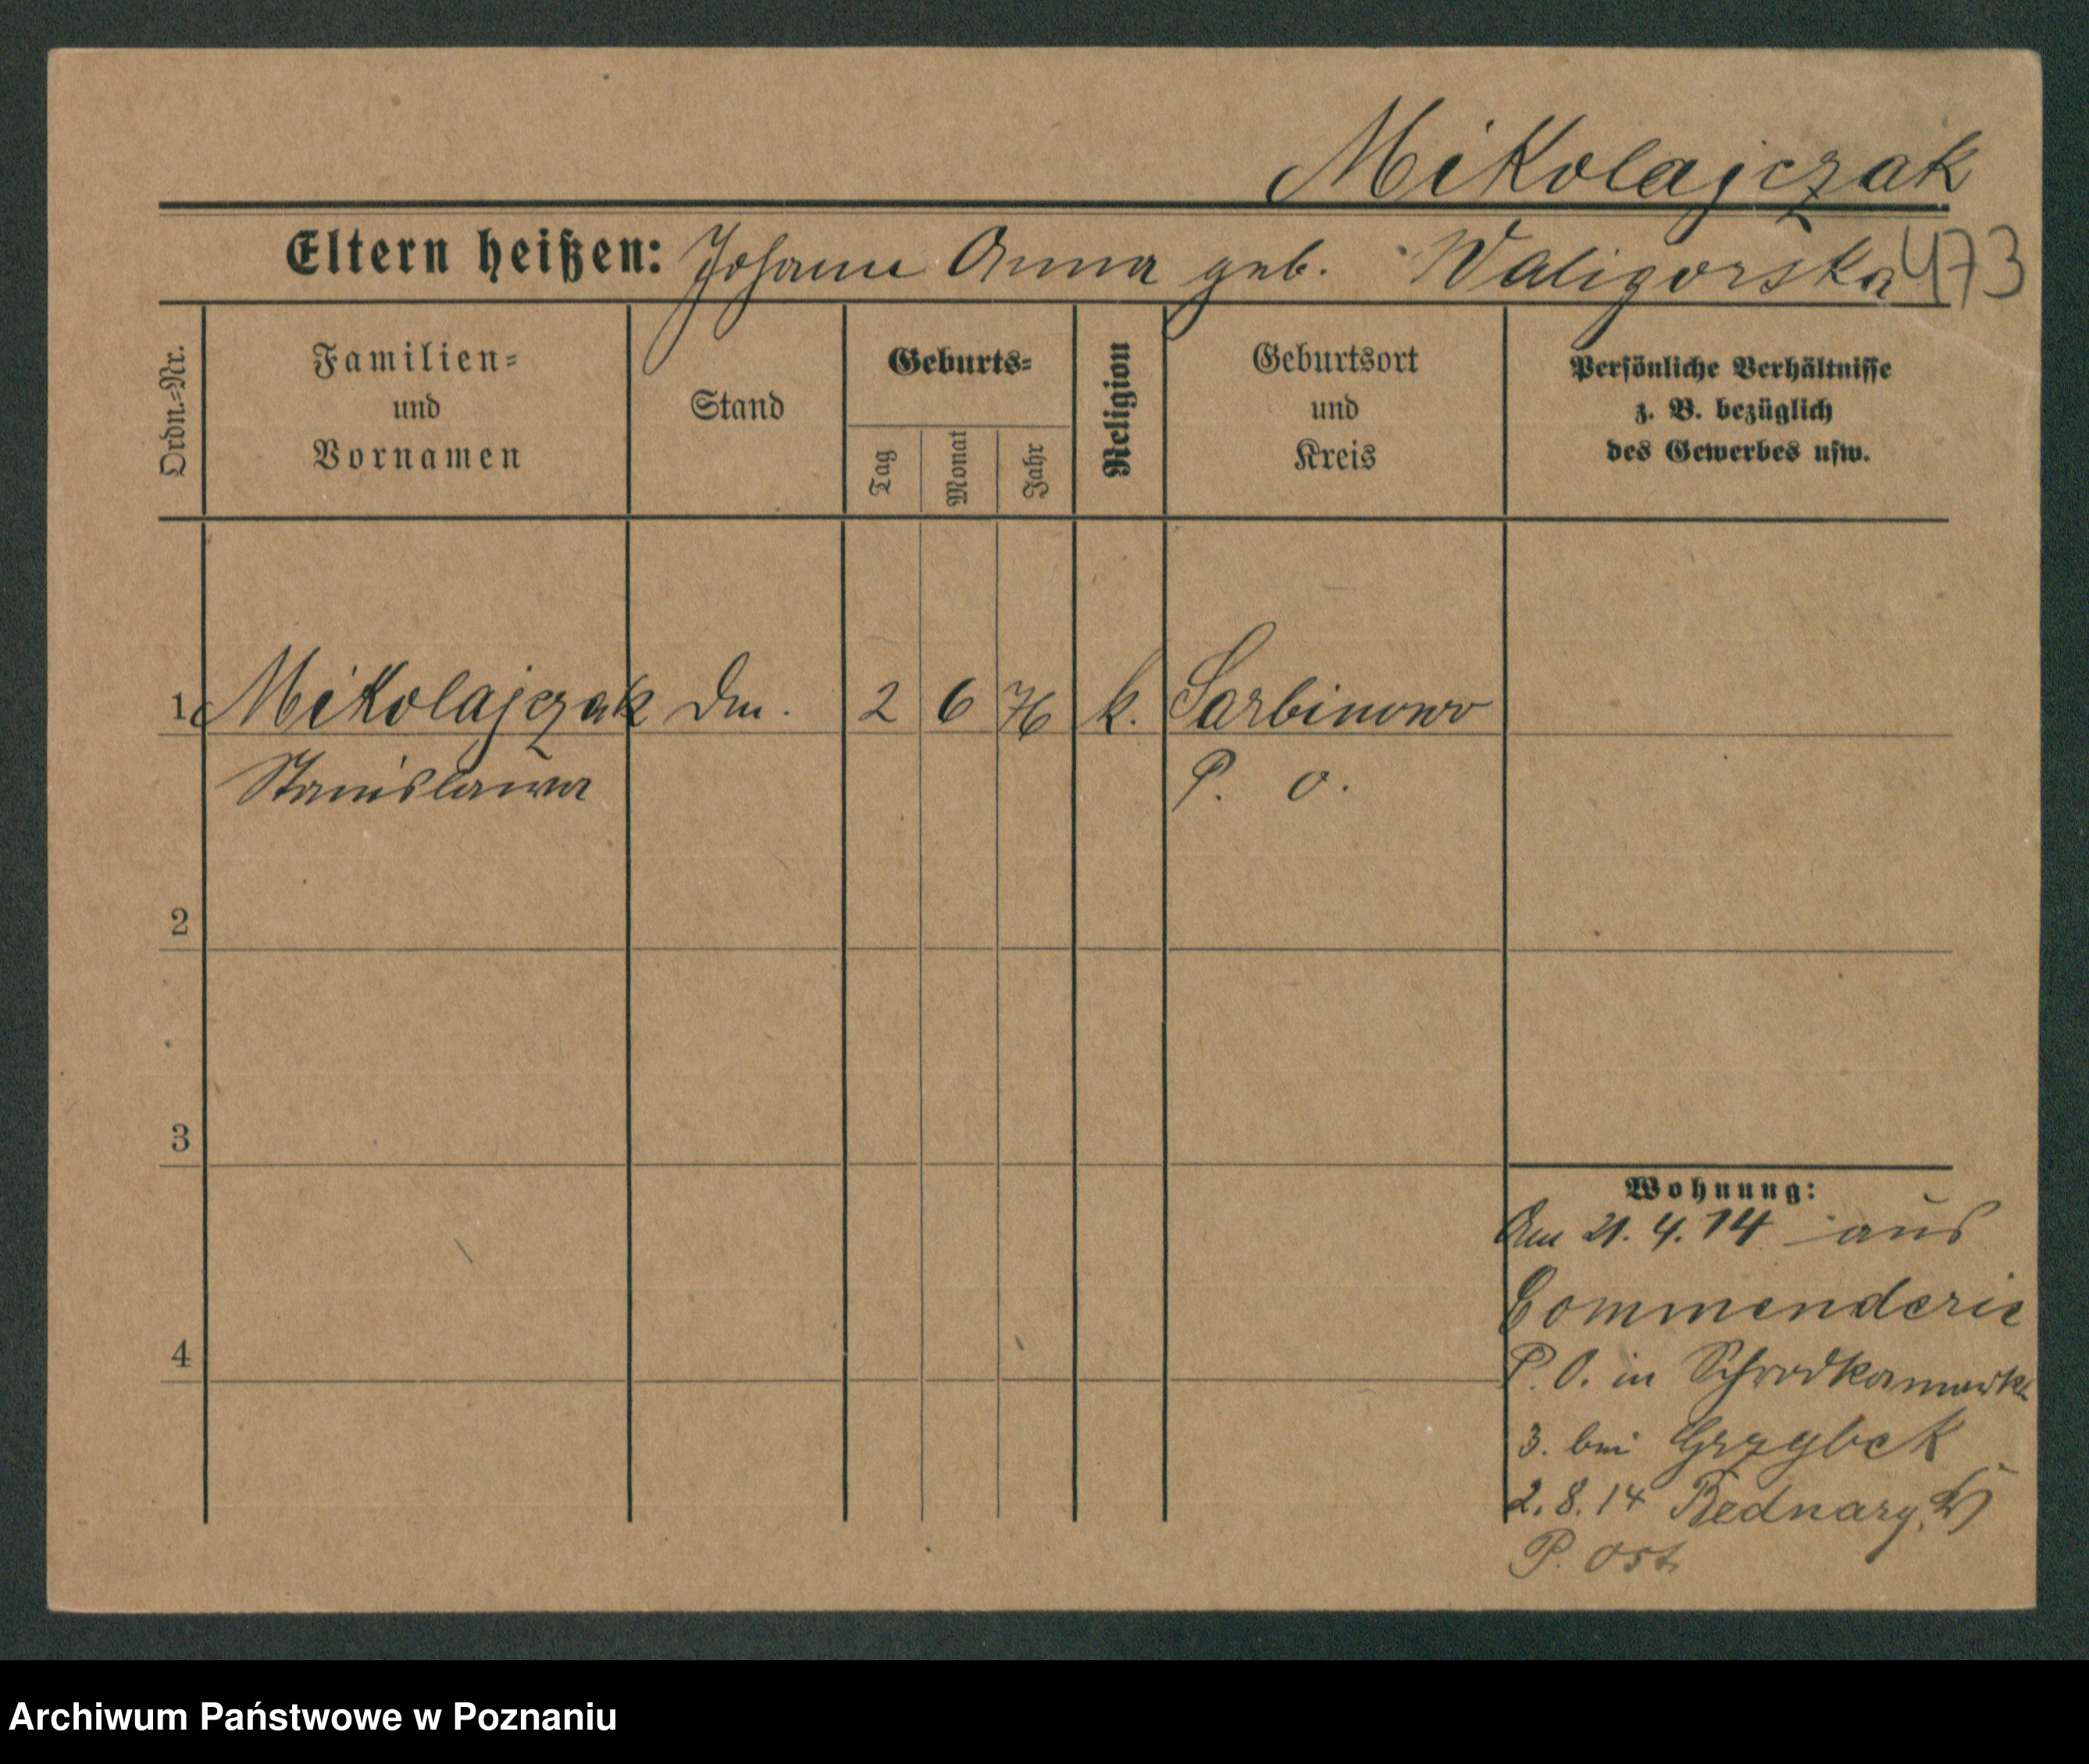 Mikolajczak
Eltern heißen: Johann Anna geb. Waligorska 473
Ordn.-Nr.
Familien-
und
Vornamen
Stand
Geburts-
Tag
Monat
Jahr
Religion
Geburtsort
und
Kreis
Persönliche Verhältnisse
z. B. bezüglich
des Gewerbes usw.
1 Mikolajczak 2 6 76 k. Sarbinowo
Stanislawa P. O.
2
3
4
Wohnung:
Am 21. 4. 14 aus
Commenderie
P. O. in Schrodkamarkt
3. bei Grzybek
2. 8. 14 Bednary,
P. Ost
Archiwum Państwowe w Poznaniu